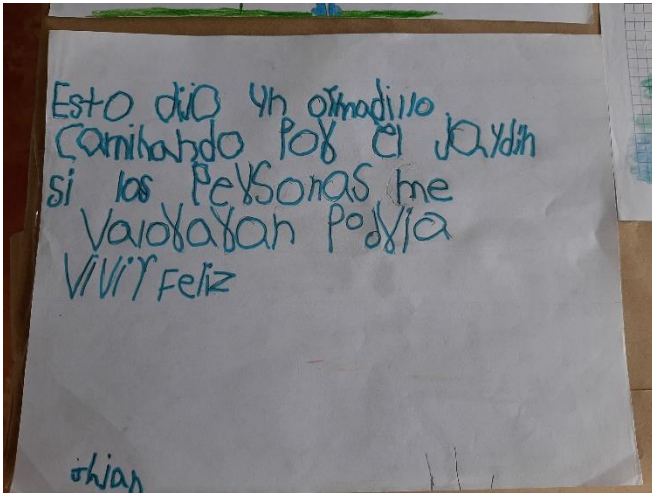 Esto dijo un armadillo
Caminando por el jardin
si las Personas me
Valoraran Podria
Vivir Feliz
jhian